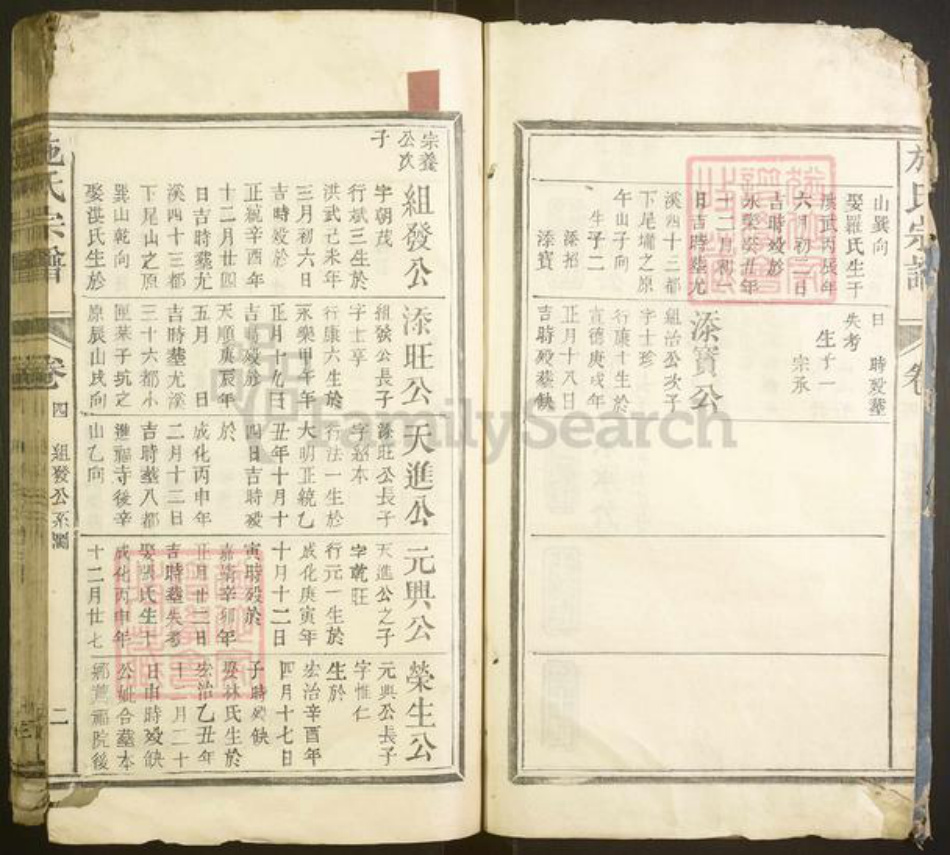 施氏宗譜
卷
山巽向
娶羅氏生于
洪武丙辰年
六月初二日
吉時歿於
永樂癸丑年
十二月初一
日吉時塟尤
溪四十三都
下尾墉之原
午山子向
生子二
添招
添寶
日 時歿塟
失考
生子一
宗承
添寶公
組治公次子
字士珍
行康十生於
宣德庚戌年
正月十八日
吉時歿塟缺
宗養
公次
子
組發公
字朝茂
行斌三生於
洪武己未年
三月初六日
吉時歿於
正統辛酉年
十二月廿四
日吉時塟尤
溪四十三都
下尾山之原
巽山乾向
娶湛氏生於
添旺公
組發公長子
字士亨
行康六生於
永樂甲午年
正月十九日
吉時歿於
天順庚辰年
五月 日
吉時塟尤溪
三十六都小
匣菜子坑之
原辰山戌向
天進公
添旺公長子
字紹本
行法一生於
大明正統乙
丑年十月十
四日吉時歿
於
成化丙申年
二月十二日
吉時塟八都
進福寺後辛
山乙向
元興公
天進公之子
字乾旺
行元一生於
成化庚寅年
十月十二日
寅時歿於
嘉靖辛卯年
正月廿二日
吉時塟失考
娶張氏生于
成化丙申年
十二月廿七
榮生公
元興公長子
字惟仁
生於
宏治辛酉年
四月十七日
子時歿缺
娶林氏生於
宏治乙丑年
十二月二十
日申時歿缺
公妣合塟本
鄉薦福院後
施氏宗譜
卷四
組發公系圖
二
FamilySearch